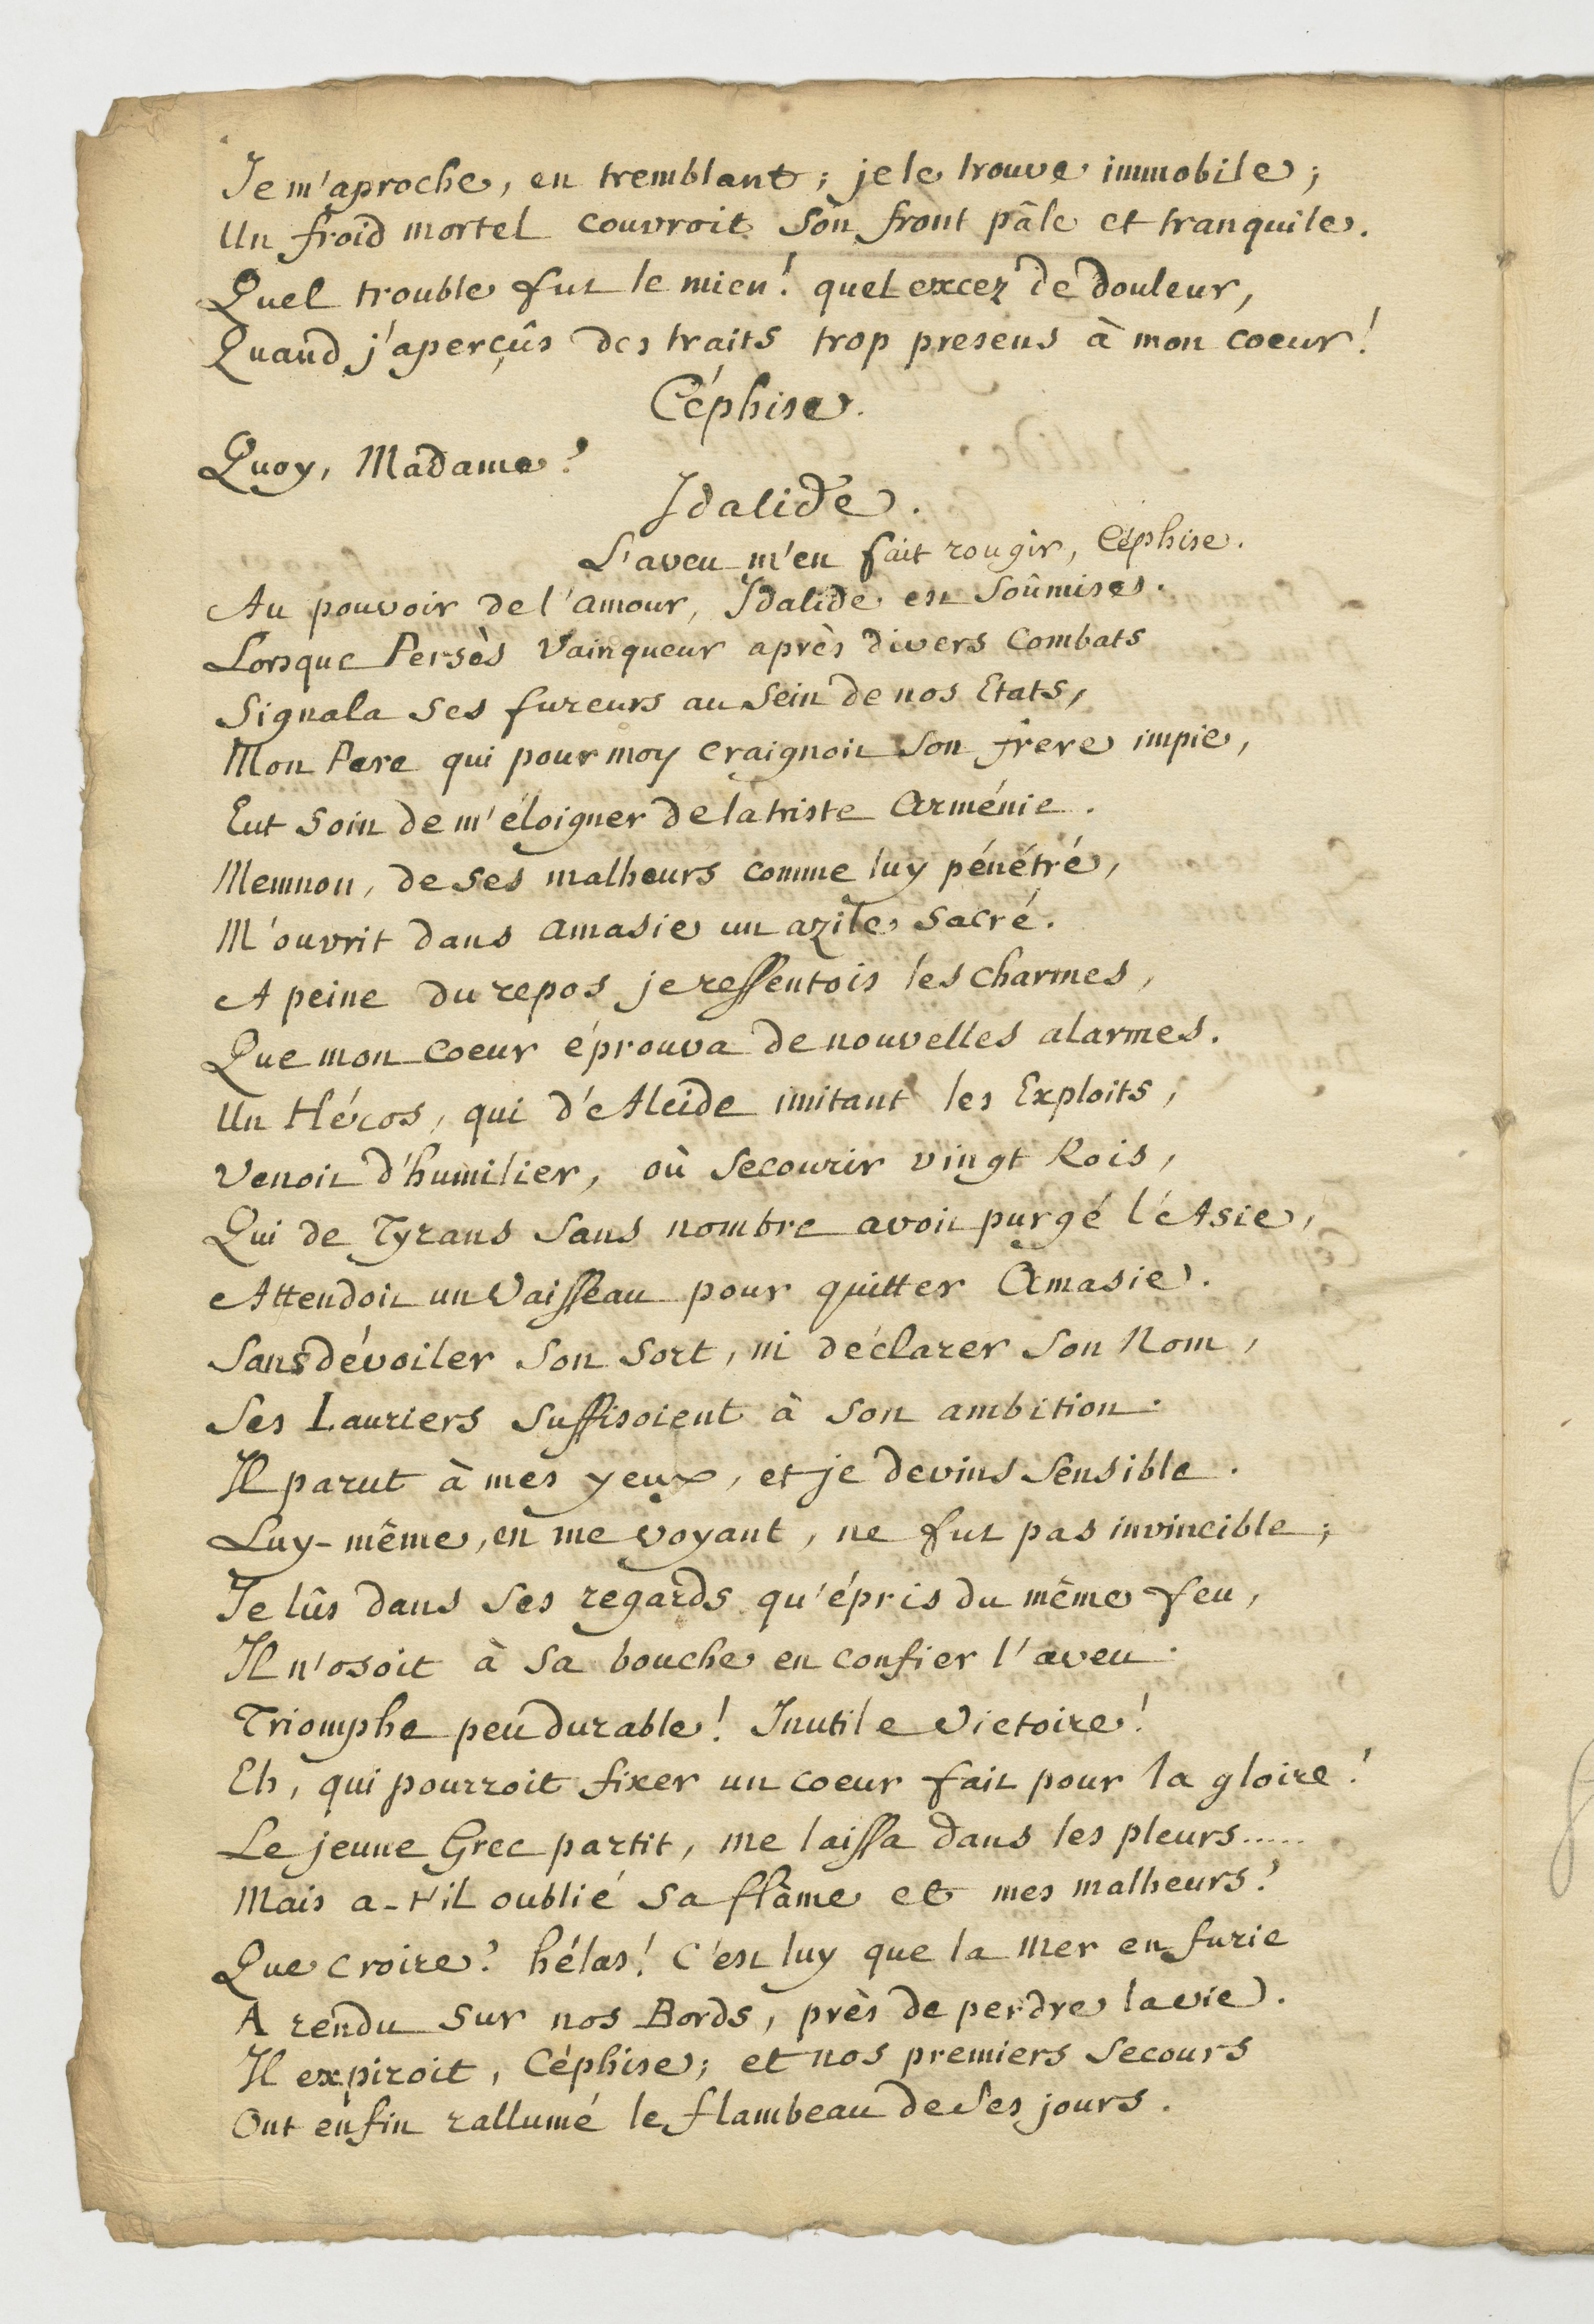 Je m'aproche, en tremblant; je le trouve immobile;
Un froid mortel couvroit son front pâle et tranquile.
Quel trouble fut le mien! quel excez de douleur,
Quand j'aperçûs des traits trop presens à mon coeur!
Céphise.
Quoy, Madame?
Idalide.
L'aveu m'en fait rougir, Céphise.
Au pouvoir de l'amour, Idalide est soûmise.
Lorsque Persès vainqueur après divers combats
Signala ses fureurs au sein de nos Etats,
Mon Pere qui pour moy craignoit son frere impie,
Eut soin de m'éloigner de la triste Arménie.
Memnon, de ses malheurs comme luy pénétré,
M'ouvrit dans Amasie un azile sacré.
A peine du repos je ressentois les charmes,
Que mon coeur éprouva de nouvelles alarmes.
Un Héros, qui d'Alcide imitant les Exploits,
Venoit d'humilier, où secourir vingt Rois,
Qui de Tyrans sans nombre avoit purgé l'Asie,
Attendoit un Vaisseau pour quitter Amasie.
Sans dévoiler son sort, ni déclarer son Nom,
Ses Lauriers suffisoient à son ambition.
Il parut à mes yeux, et je devins sensible.
Luy-même, en me voyant, ne fut pas invincible;
Je lûs dans ses regards qu'épris du même feu,
Il n'osoit à sa bouche en confier l'aveu.
Triomphe peu durable! Inutile Victoire!
Eh, qui pourroit fixer un coeur fait pour la gloire!
Le jeune Grec partit, me laissa dans les pleurs.....
Mais a-t'il oublié sa flâme et mes malheurs?
Que croire? hélas! C'est luy que la Mer en furie
A rendu sur nos Bords, près de perdre la vie.
Il expiroit, Céphise; et nos premiers secours
Ont enfin rallumé le flambeau de ses jours.